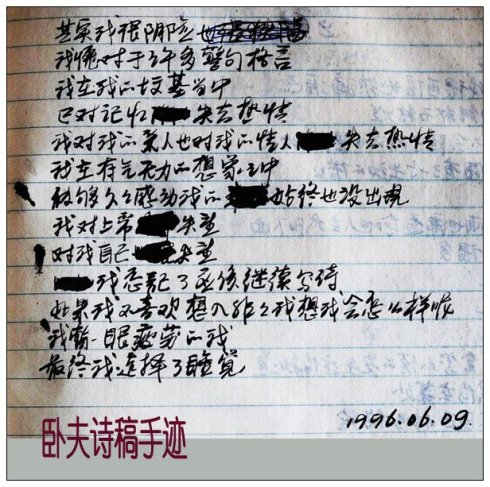 其实我很阴险也
我愧对于许多警句格言
我在我的坟墓当中
已对记忆失去热情
我对我的亲人也对我的情人失去热情
我在有气无力的想象之中
能够久久感动我的始终也没出现
我对上帝失望
对我自己失望
我忘记了死后继续写诗
如果我不喜欢想入非非我想我会怎么样呢
我瞥一眼疲劳的我
最终我选择了睡觉
1996.06.09.
卧夫诗稿手迹